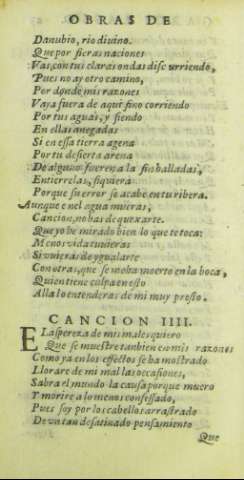 OBRAS DE
Danubio, rio diuino.
Que por fieras naciones
Vas, con tus claras ondas discurriendo,
Pues no ay otro camino,
Por donde mis razones
Vaya fuera de aqui sino corriendo
Por tus aguas, y siendo
En ellas anegadas
Si en essa tierra agena
Por tu desierta arena
De alguno fueren a la fin halladas,
Entierrelas, siquiera
Porque su error se acabe en tu ribera.
Aunque en el agua mueras,
Cancion, no has de quexarte.
Que yo he mirado bien lo que te toca:
Menos vida tuuieras
Si vuieras de ygualarte
Con otras, que se me han muerto en la boca,
Quien tiene culpa en esto
Alla lo entenderas de mi muy presto.
CANCION IIII.
EL aspereza de mis males quiero
Que se muestre tambien en mis razones
Como ya en los effectos se ha mostrado
Llorare de mi mal las occasiones,
Sabra el mundo la causa porque muero
Y morire a lo menos confessado,
Pues soy por los cabellos arrastrado
De vn tan desatinado pensamiento
Que